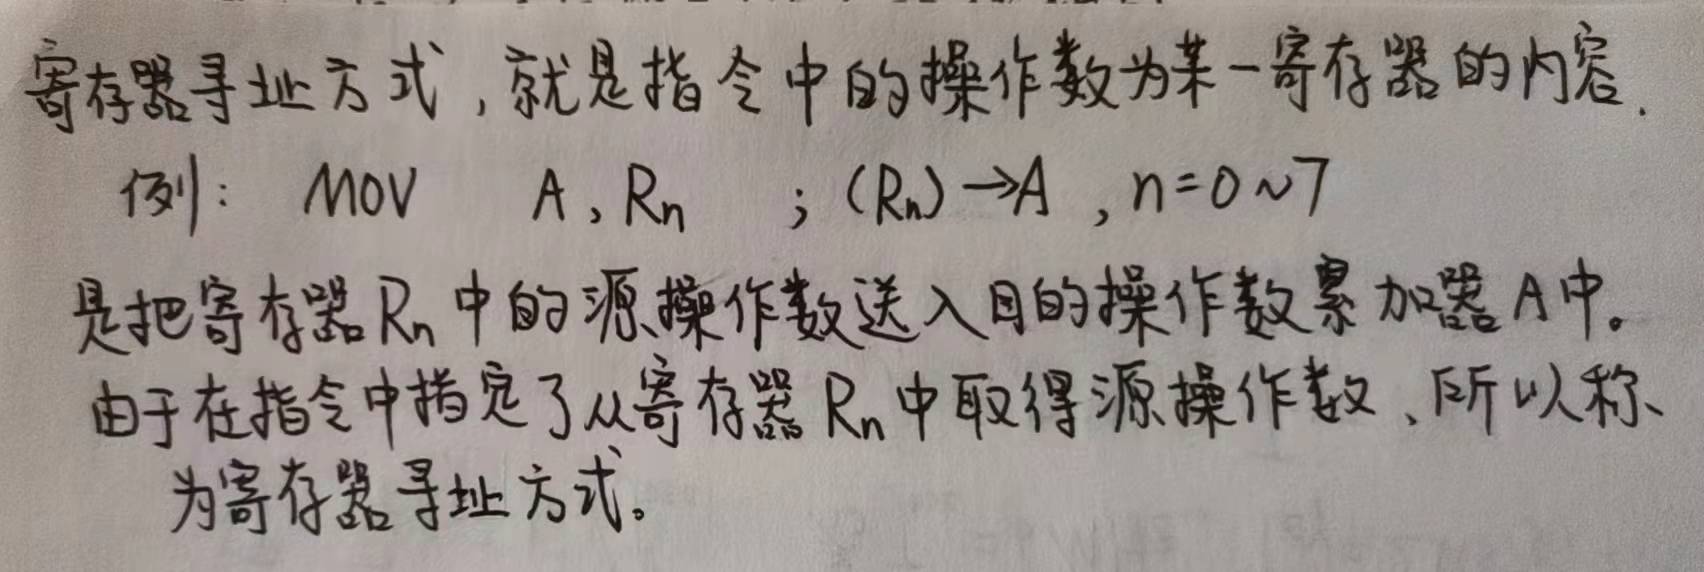 寄存器寻址方式,就是指令中的操作数为某一寄存器的内容.
例: MOV A,Rn ;(Rn)→A ,n=0~7
是把寄存器Rn中的源操作数送入目的操作数累加器A中。
由于在指令中指定了从寄存器Rn中取得源操作数、所以称
为寄存器寻址方式。